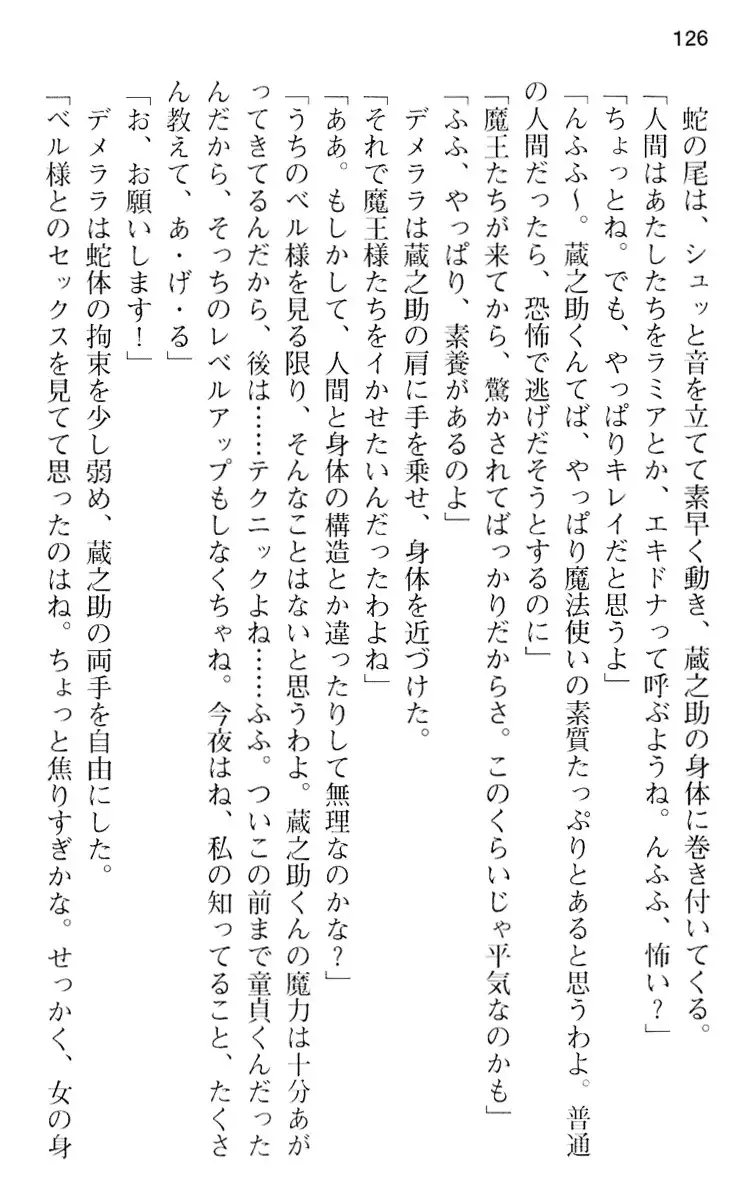 126
蛇の尾は、シュッと音を立てて素早く動き、蔵之助の身体に巻き付いてくる。
「人間はあたしたちをラミアとか、エキドナって呼ぶようね。んふふ、怖い?」
「ちょっとね。でも、やっぱりキレイだと思うよ」
「んふふ～。蔵之助くんてば、やっぱり魔法使いの素質たっぷりとあると思うわよ。普通
の人間だったら、恐怖で逃げだそうとするのに」
「魔王たちが来てから、驚かされてばっかりだからさ。このくらいじゃ平気なのかも」
「ふふ、やっぱり、素養があるのよ」
デメララは蔵之助の肩に手を乗せ、身体を近づけた。
「それで魔王様たちをイかせたいんだったわよね」
「ああ。もしかして、人間と身体の構造とか違ったりして無理なのかな?」
「うちのベル様を見る限り、そんなことはないと思うわよ。蔵之助くんの魔力は十分あが
ってきてるんだから、後は……テクニックよね……ふふ。ついこの前まで童貞くんだった
んだから、そっちのレベルアップもしなくちゃね。今夜はね、私の知ってること、たくさ
ん教えて、あ・げ・る」
「お、お願いします!」
デメララは蛇体の拘束を少し弱め、蔵之助の両手を自由にした。
「ベル様とのセックスを見てて思ったのはね。ちょっと焦りすぎかな。せっかく、女の身